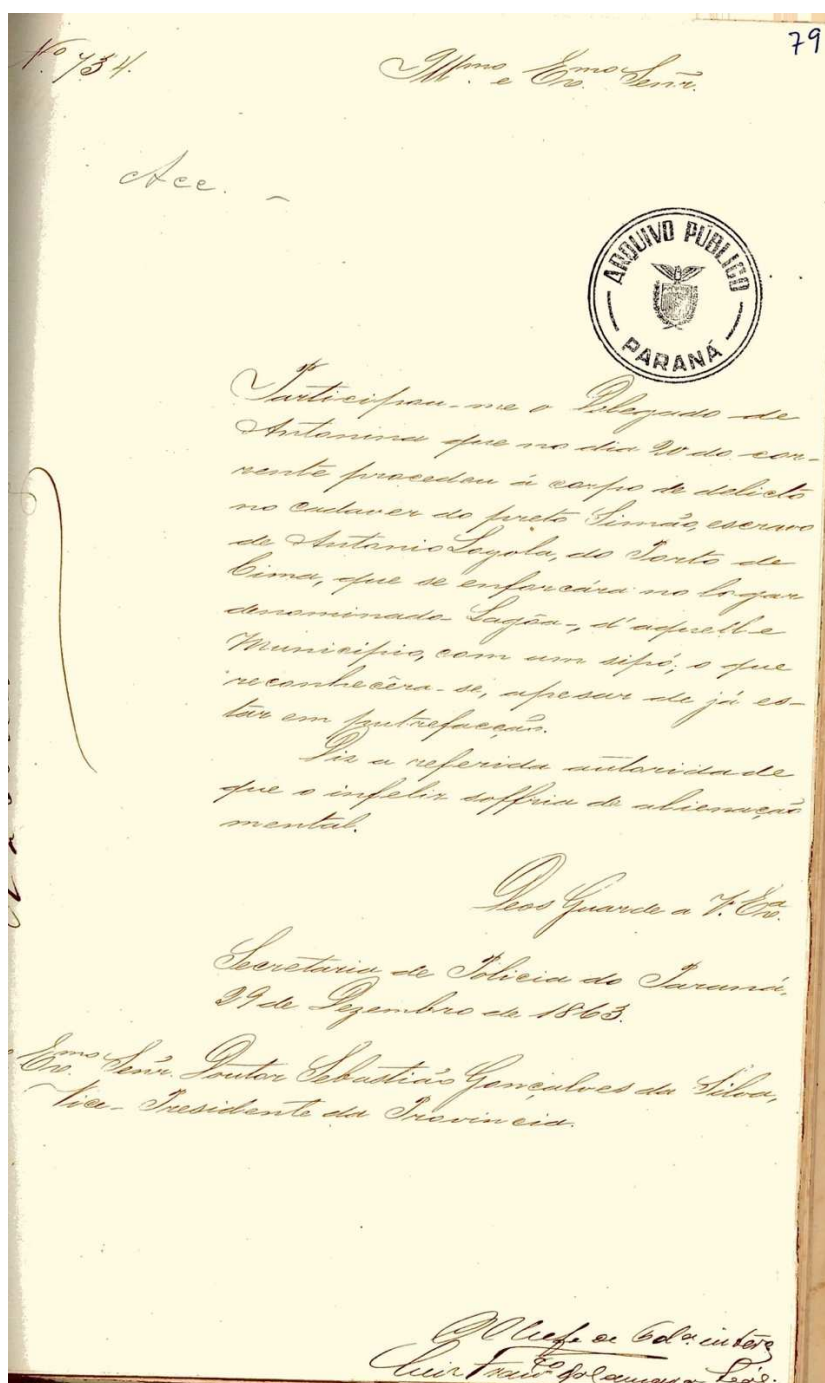 79
Nº 734.
Illmo. e Exmo. Senr.
Acc. -
ARQUIVO PÚBLICO
PARANÁ
Participou-me o Delegado de
Antonina que no dia 20 do cor-
rente procedeu á corpo de delicto
no cadaver do preto Simão, escravo
de Antonio Loyola, do Porto de
Cima, que se enforcára no logar
denominado - Lagôa -, d'aquelle
Municipio, com um sipó; o que
reconhecêra-se, apesar de já es-
tar em putrefacção.
Diz a referida autoridade
que o infeliz soffria de alienação
mental.
Deos Guarde a V. Exa.
Secretaria de Policia do Paraná,
29 de Dezembro de 1863.
Exmo. Senr. Doutor Sebastião Gonçalves da Silva,
Vice-Presidente da Provincia.
O Chefe de
Luiz Franco da Camara Leal.